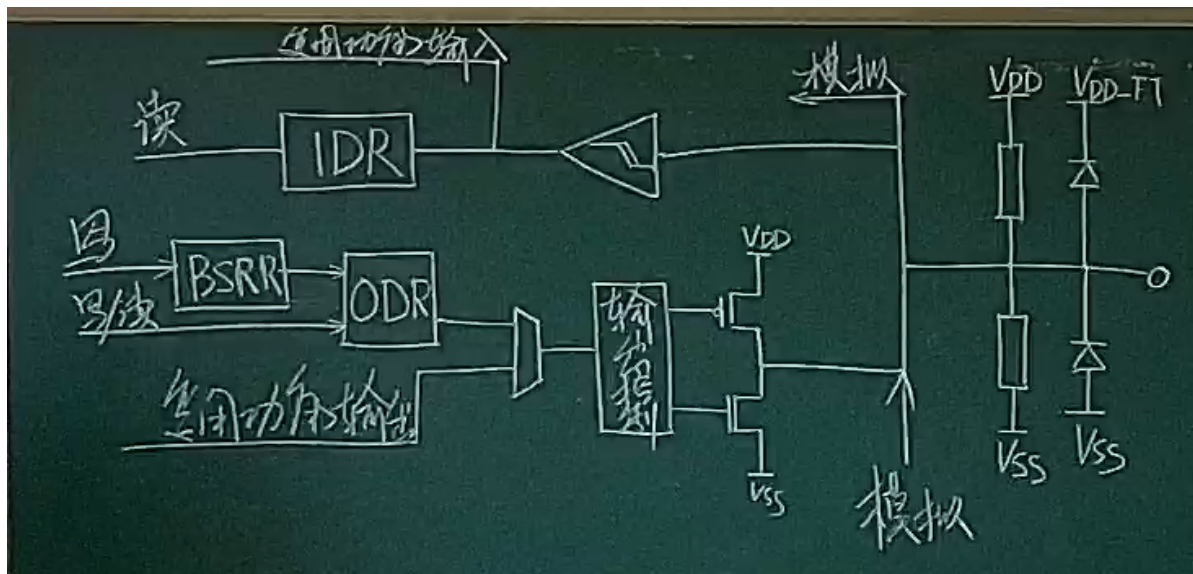 复用功能输入
模拟
VDD
VDD-FT
读
IDR
写
BSRR
写/读
ODR
VDD
输出控制
复用功能输出
VSS
VSS
VSS
模拟